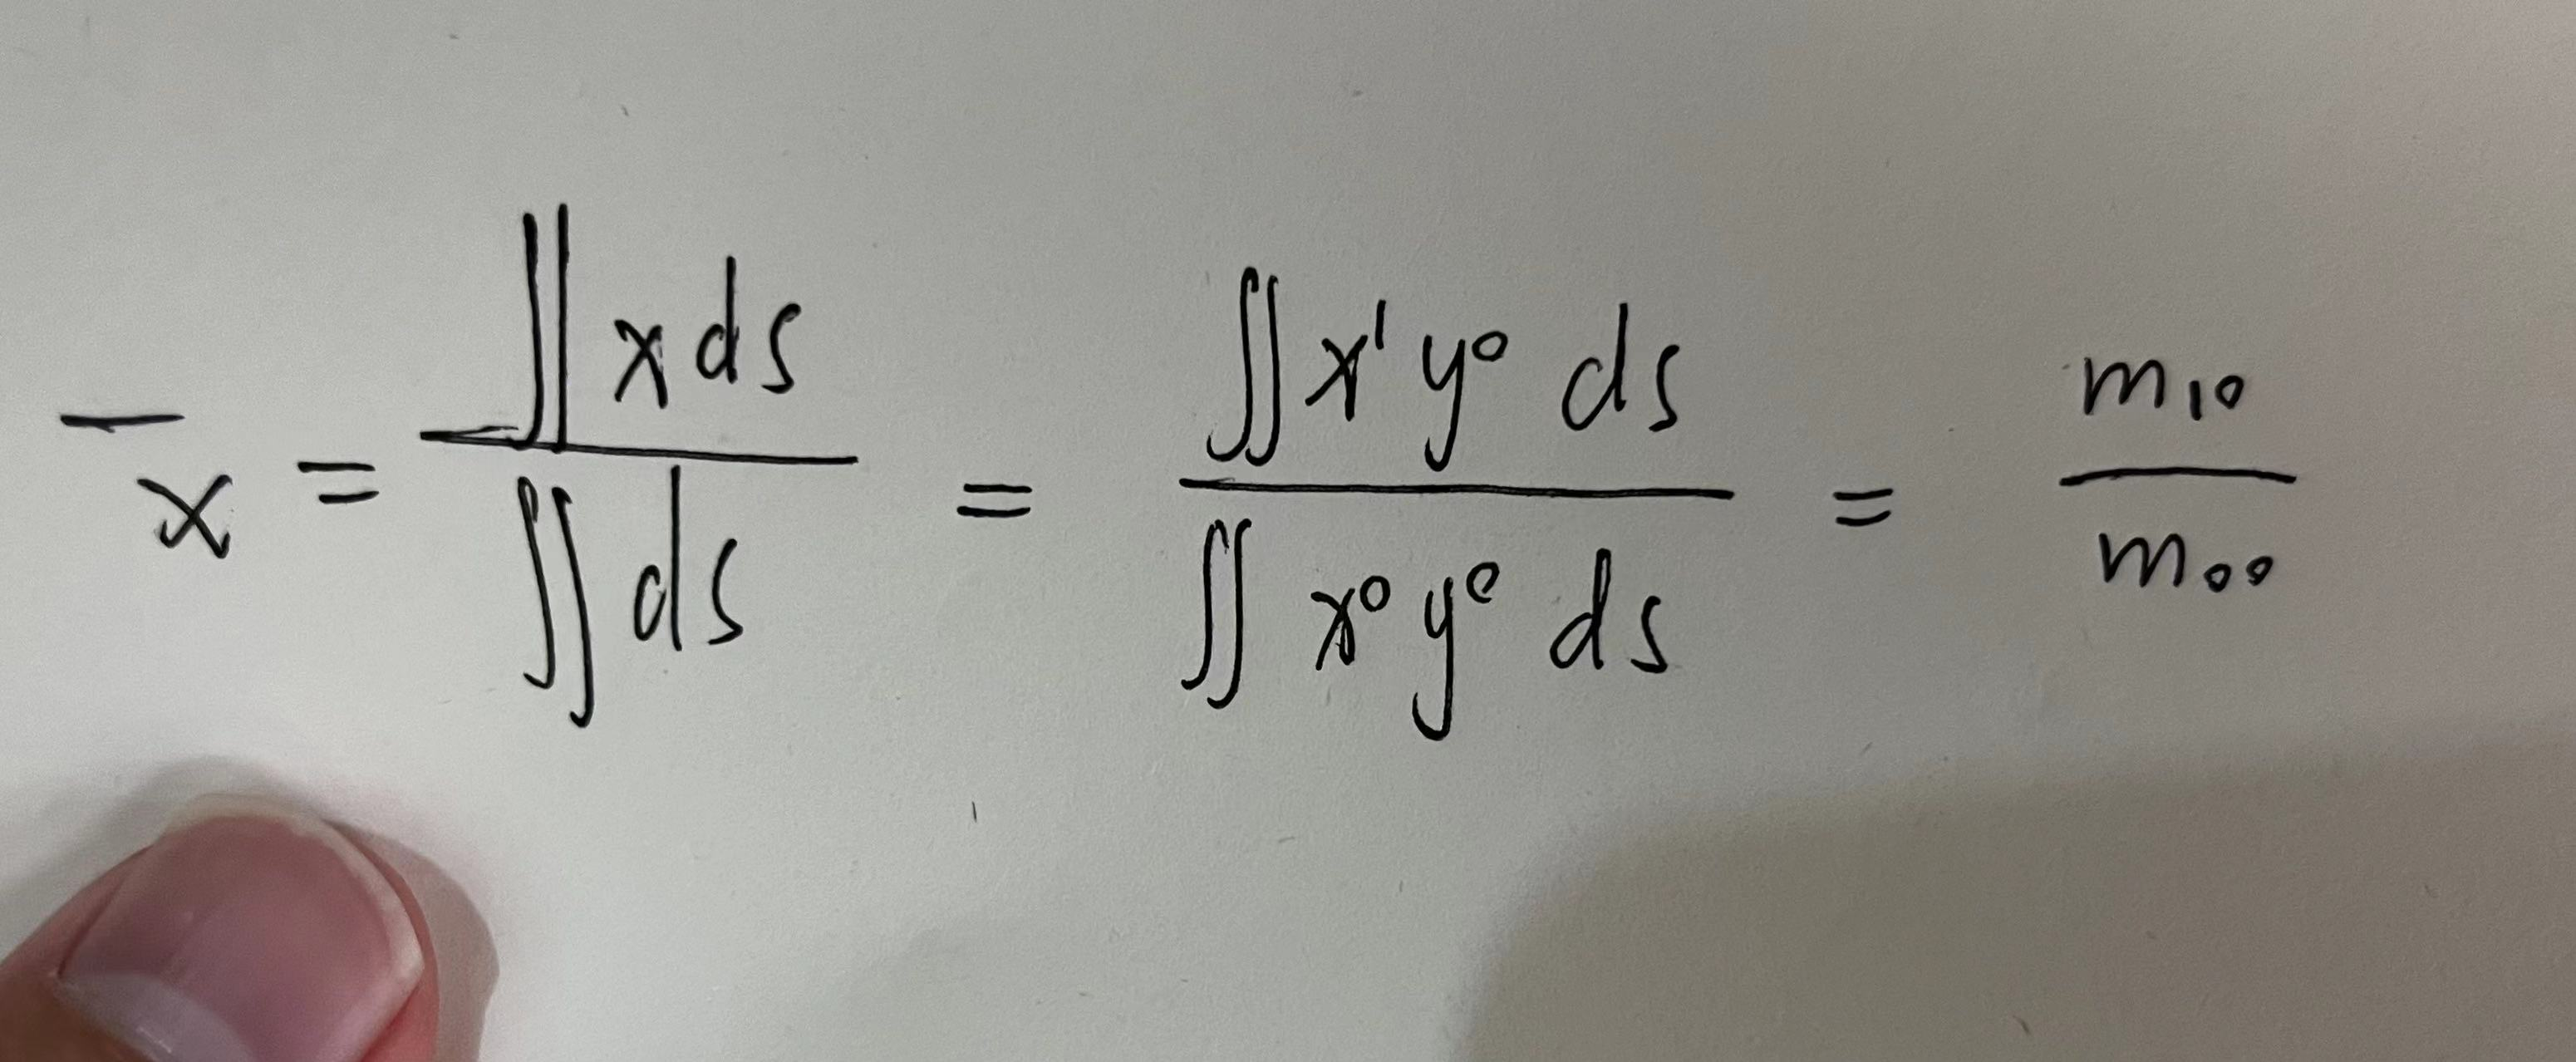 x̄ = ∬ x ds / ∬ ds = ∬ x¹ y⁰ ds / ∬ x⁰ y⁰ ds = m₁₀ / m₀₀